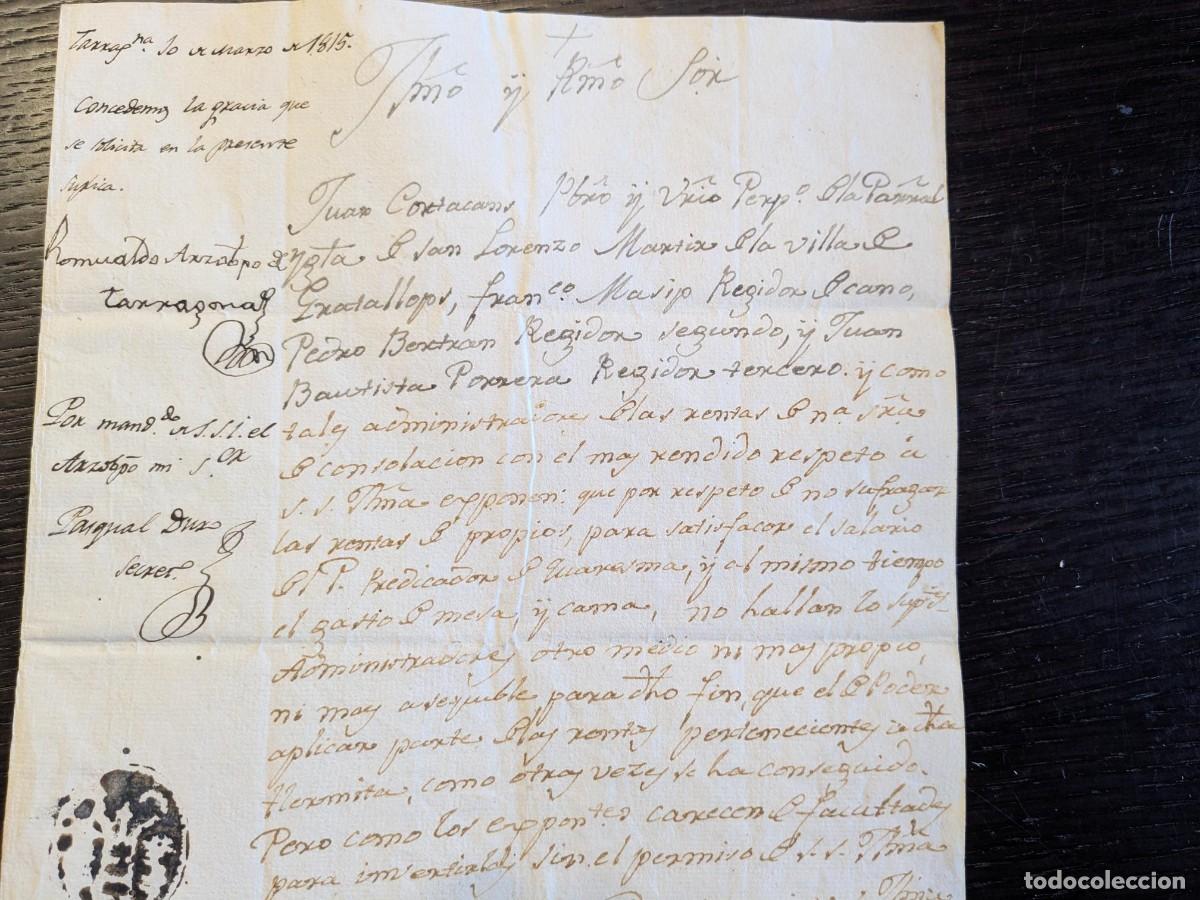 Tarrag.na 10 de Marzo de 1815.
Concedemos la gracia que
se solicita en la presente
suplica.
Romualdo Arzobpo de
Tarragona
Por mand.do de S.S.I. el
Arzobpo mi S.or
Pasqual Duro
Secret.
+
Yllmo y Rmo Sor
Juan Cortacans Pbro y Vrio Perp.o de la Parral
Ygta de San Lorenzo Martir de la villa de
Gratallops, Fran.co Masip Regidor Decano,
Pedro Bertran Regidor segundo, y Juan
Bautista Porrera Regidor tercero. y como
tales administradores de las rentas de na. sra.
de Consolacion con el mas rendido respeto á
S. S. Yllma exponen: que por respeto de no sufragar
las rentas de propios, para satisfacer el salario
del P. Predicador de Quaresma, y al mismo tiempo
el gasto de mesa, y cama, no hallan lo sup.tes
Administradores otro medio ni mas propio,
ni mas asequible, para dho fin, que el de Poder
aplicar parte de las rentas pertenecientes a dha
Hermita, como otras vezes se ha conseguido.
Pero como los expontes carecen de facultades
para invertirlas sin el permiso de S. S. Yllma
todocoleccion